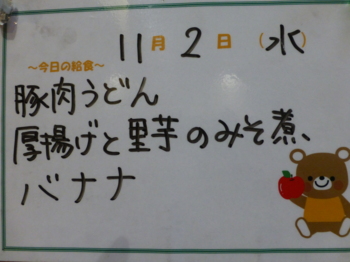 11月2日(水)
～今日の給食～
豚肉うどん
厚揚げと里芋のみそ煮、
バナナ